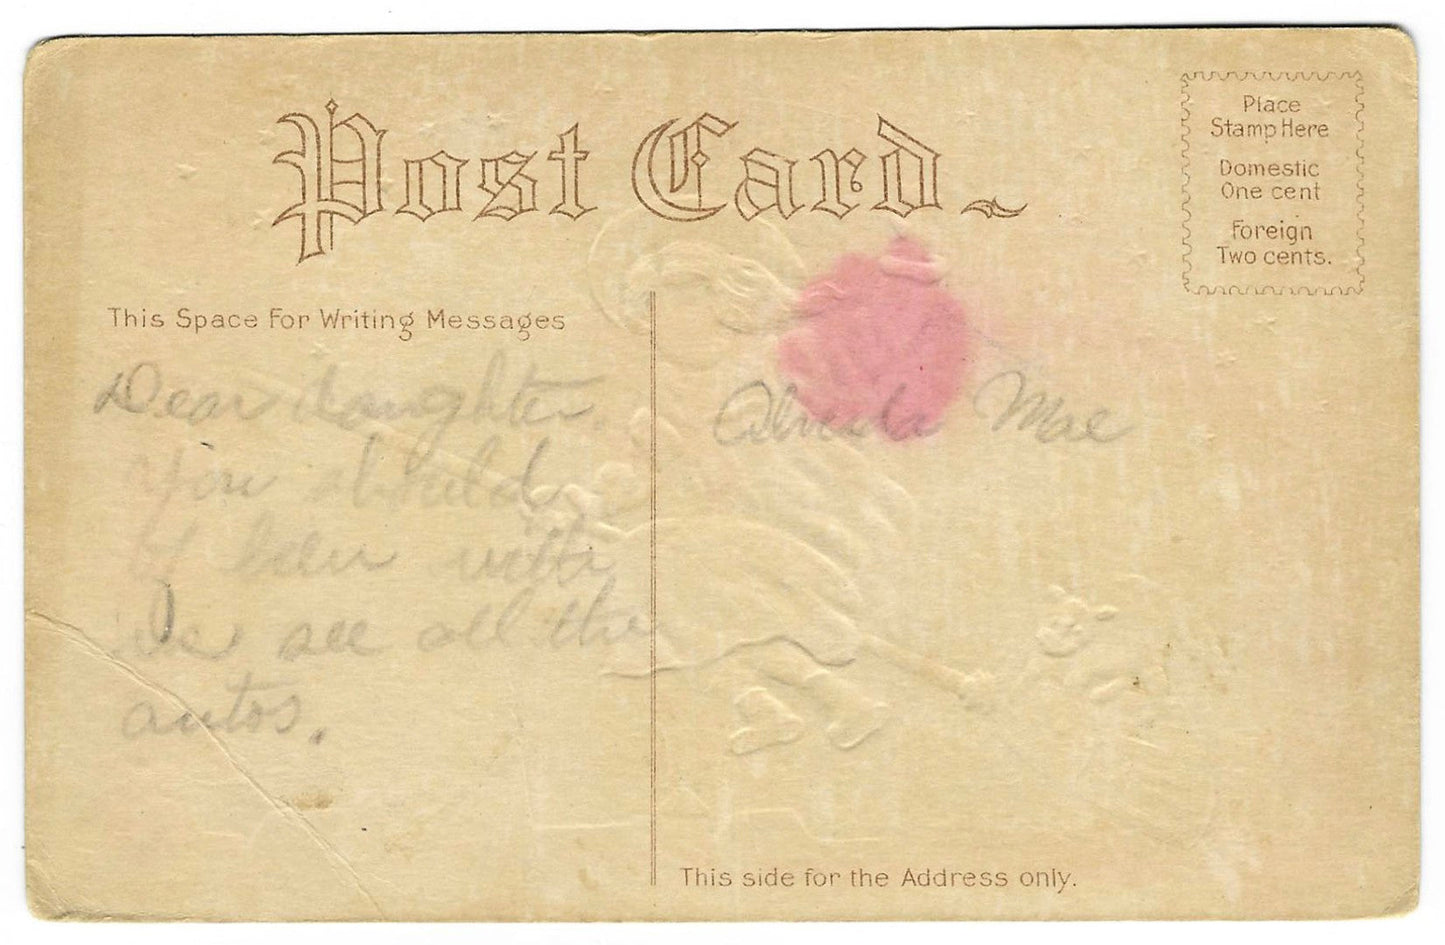 Post Card
Place
Stamp Here
Domestic
One cent
Foreign
Two cents.
This Space For Writing Messages
Dear daughter.
You should
of been with
see all the
autos.
Mae
This side for the Address only.